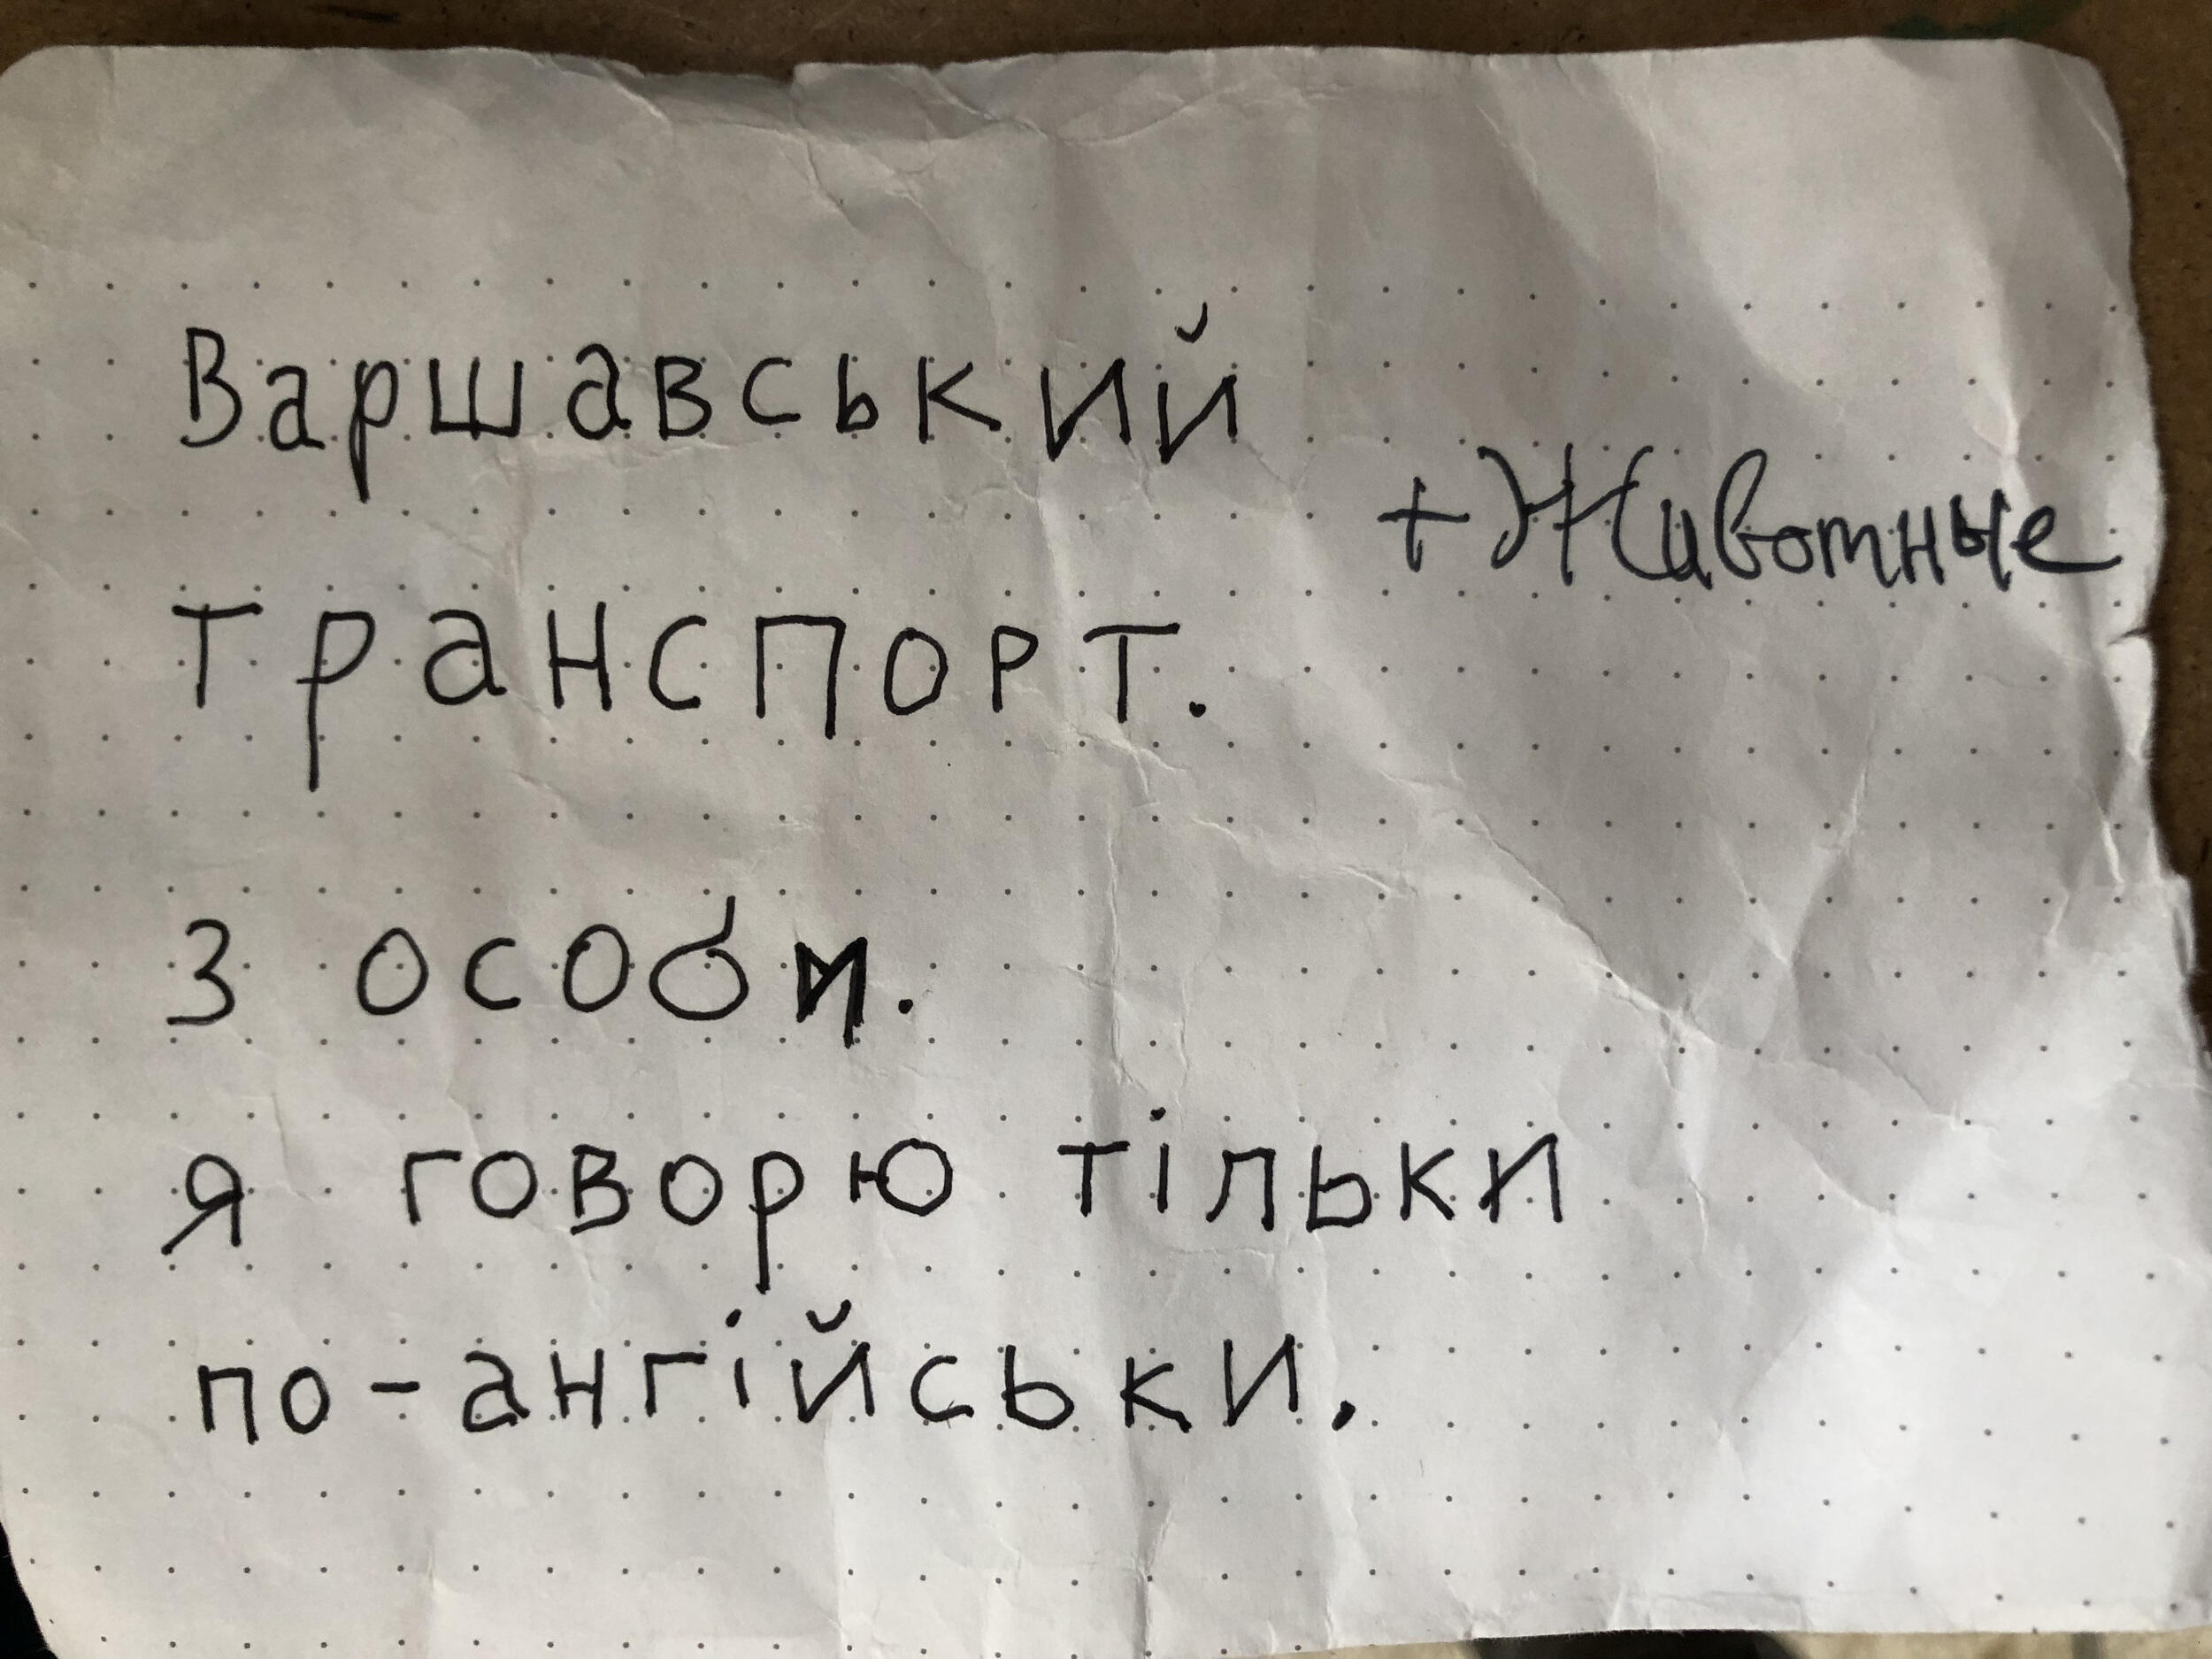 Варшавський
+Животные
транспорт.
3 особи.
я говорю тільки
по-ангійськи.